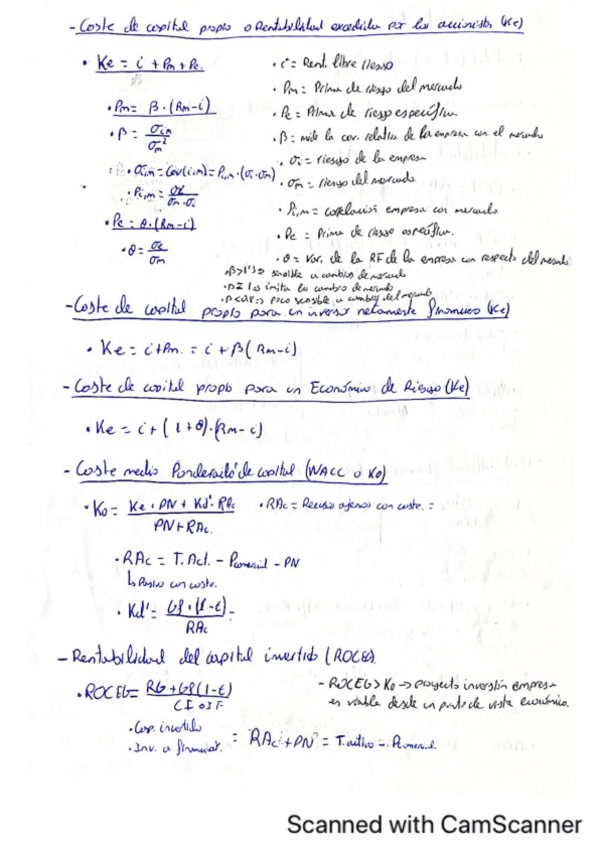 - Coste de capital propio o Rentabilidad por los accionistas (Ke)
• Ke = i + Pm + Pe.
• i = Rent. libre riesgo
• Pm = Prima de riesgo del mercado
• Pm = β · (Rm - i)
• Pe = Prima de riesgo específico.
• β = σim / σm²
• β = mide la cov. relativa de la empresa con el mercado
• σi = riesgo de la empresa
• σi,m = Cov(i,m) = Pi,m · (σi · σm)
• σm = riesgo del mercado
• Pi,m = / σm · σi
• Pi,m = correlación empresa con mercado
• Pe = θ · (Rm - i)
• Pe = Prima de riesgo específico.
• θ = σe / σm
• θ = Var. de la RF de la empresa con respecto del mercado
• β>1 => sensible a cambios de mercado
• β=1 => imita los cambios de mercado
• => poco sensible a cambios del mercado
- Coste de capital propio para un inversor netamente financiero (Ke)
• Ke = i + Pm = i + β (Rm - i)
- Coste de capital propio para un Económico de Riesgo (Ke)
• Ke = i + (1 + θ) · (Rm - i)
- Coste medio Ponderado de capital (WACC o Ko)
• Ko = Ke · PN + Kd' · RAc / PN + RAc.
• RAc = Recursos ajenos con coste. =
• RAc = T. Act. - Pcomercial - PN
↳ Pasivo con coste.
• Kd' = Gf · (1 - t) / RAc
- Rentabilidad del capital invertido (ROCE)
• = + Gf (1 - t) / CI o IF
- > Ko → proyecto inversión empresa
es viable desde un punto de vista económico.
• Cap. invertido
• Inv. a financiar.
= RAc + PN = T. activo - P. comercial.
Scanned with CamScanner